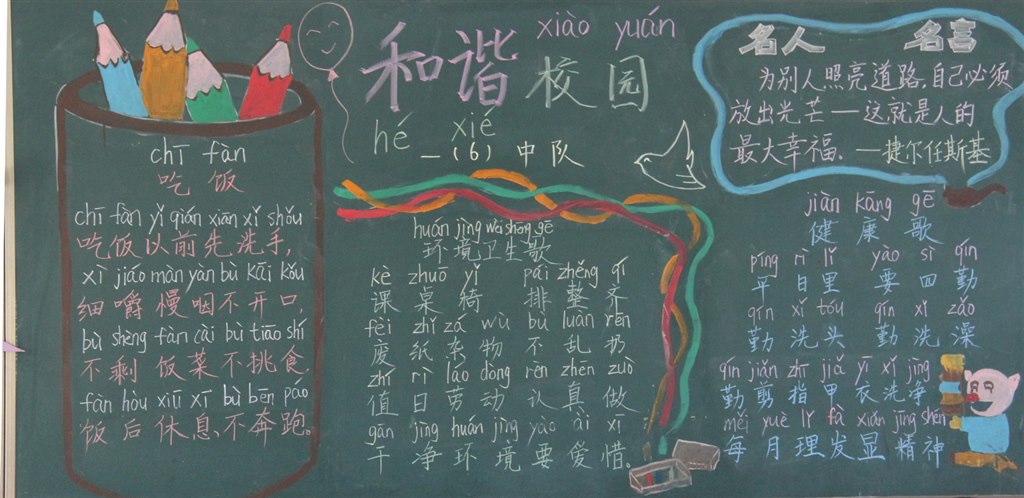 chī fàn
吃饭
chī fàn yǐ qián xiān xǐ shǒu
吃饭以前先洗手,
xì jiáo màn yàn bù kāi kǒu
细嚼慢咽不开口,
bù shèng fàn cài bù tiāo shí
不剩饭菜不挑食,
fàn hòu xiū xī bù bēn pǎo
饭后休息不奔跑。
xiào yuán
和谐校园
hé xié
一(6)中队
huán jìng wèi shēng gē
环境卫生歌
kè zhuō yǐ pái zhěng qí
课桌椅排整齐
fèi zhǐ zá wù bù luàn rēn
废纸杂物不乱扔
zhí rì láo dòng rèn zhēn zuò
值日劳动认真做
gān jìng huán jìng yào ài xī
干净环境要爱惜。
名人名言
为别人照亮道路,自己必须
放出光芒——这就是人的
最大幸福。——捷尔任斯基
jiàn kāng gē
健康歌
píng rì lǐ yào sì qín
平日里要四勤
qín xǐ tóu qín xǐ zǎo
勤洗头勤洗澡
qín jiǎn zhǐ jiǎ yī xǐ jìng
勤剪指甲衣洗净
měi yuè lǐ fà xiǎn jīng shén
每月理发显精神